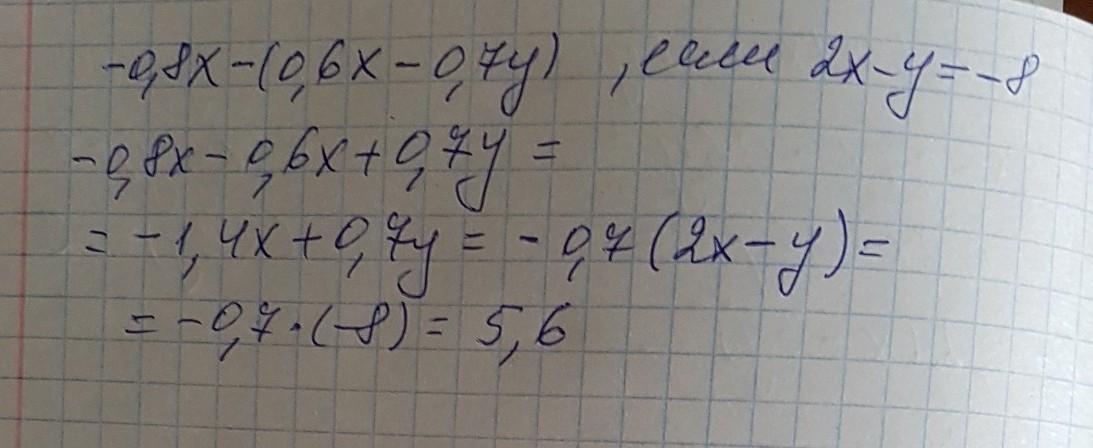 -0,8x-(0,6x-0,7y) , если 2x-y=-8
-0,8x-0,6x+0,7y=
=-1,4x+0,7y=-0,7(2x-y)=
=-0,7·(-8)=5,6